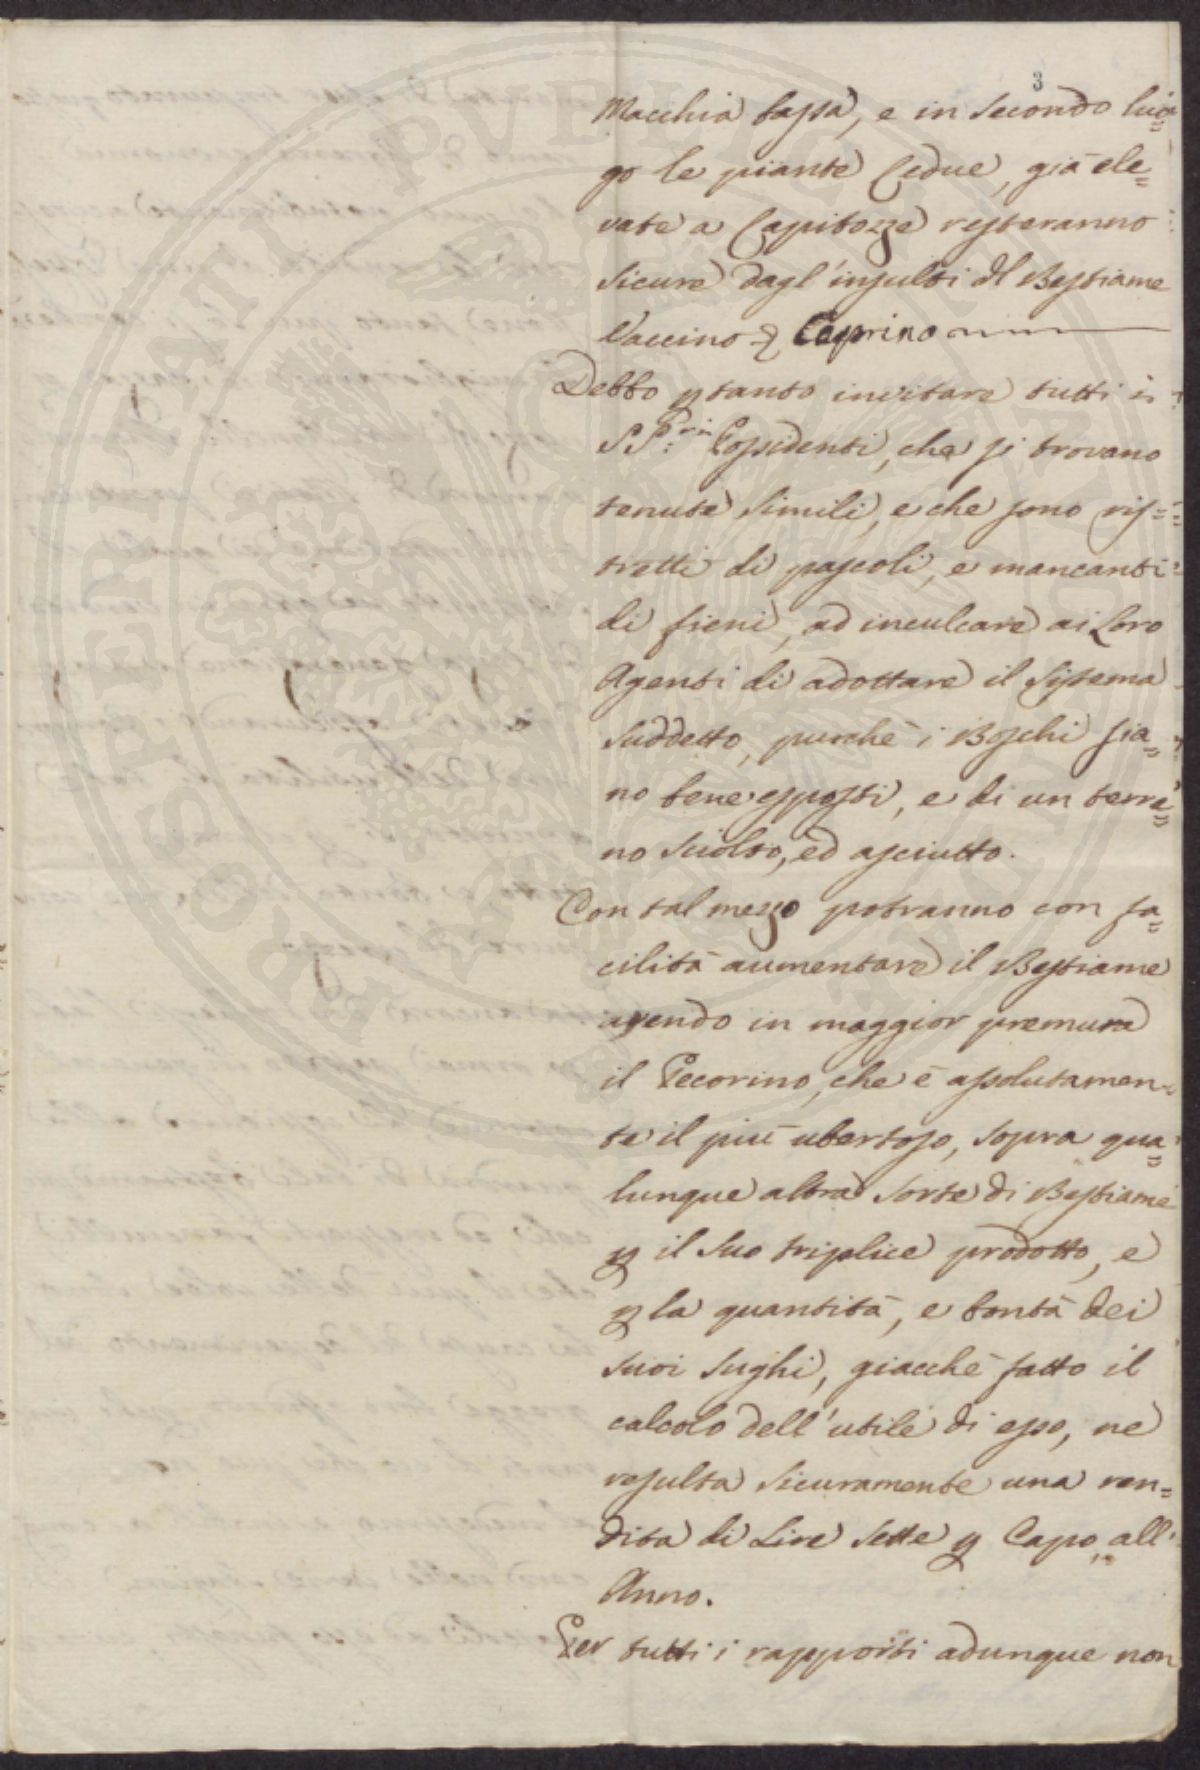 3
Macchia bassa, e in secondo luo=
go le piante Cedue, già ele=
vate a Capitozze resteranno
sicure dagl'insulti dl Bestiame
Vaccino e Caprino
Debbo ptanto invitare tutti i
SS:ri Possidenti, che si trovano
tenute simili, e che sono ris=
tretti di pascoli, e mancanti
di fieni, ad inculcare ai Loro
Agenti di adottare il Sistema
suddetto, purchè i Boschi sia=
no bene esposti, e di un terre=
no sciolto, ed asciutto.
Con tal mezzo potranno con fa=
cilità aumentare il Bestiame
avendo in maggior premura
il Pecorino, che è assolutamen=
te il più ubertoso, sopra qua=
lunque altra sorte di Bestiame
p il suo triplice prodotto, e
p la quantità, e bontà dei
suoi sughi, giacchè fatto il
calcolo dell'utile di esso, ne
resulta sicuramente una ren=
dita di Lire sette p Capo, all'
Anno.
Per tutti i rapporti adunque non
PROSPERITATI PVBLICAE AVGENDAE